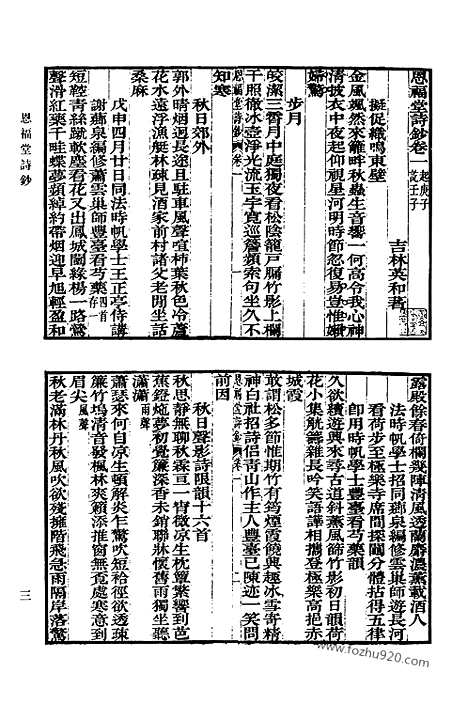 恩福堂詩鈔卷一 起庚子 訖壬子
吉林英和著
挺促織鳴東壁
金風颯然來籬畔秋蟲生音響一何高令我心神
清披衣中夜起仰視星河明時節忽復易豈惟嬾
婦驚
步月
皎潔三香月中庭獨夜看松陰龍戸牖竹影上欄
干照徹冰壺淨光流玉宇寛巡簷頻索句坐久不
知寒
秋日郊外
郭外晴烟迥長途且駐車風聲喧柿葉秋色冷蘆
花水遠浮漁艇林疎見酒家前村諸父老閒坐話
桑麻
戊申四月廿日同法時帆學士王正亭侍講
謝薌泉編修蕭雲巢師豐臺看芍藥 四首存一
短轅青絲鞚軟塵看花又出鳳城闉綠楊一路鶯
聲滑紅藥千畦蝶夢頻綽約帶烟迎早旭輕盈和
露殿餘春倚欄幾陣清風透蘭麝濃薰載酒人
法時帆學士招同薌泉編修雲巢師遊長河
看荷步至極樂寺席間探鬮分體拈得五律
卽用時帆學士豐臺看芍藥韻
久欲續遊興來尋古道斜薰風篩竹影初日韻荷
花小集觥籌雜長吟笑語譁相攜登極樂高挹赤
城霞
敢謂松多節惟期竹有筠煙霞饒興趣冰雪寄精
神白社招詩侶青山作主人豐臺已陳迹一笑問
前因
秋日聲影詩限韻十六首
秋思靜無聊秋霖亘一宵微涼生枕簟繁響到芭
蕉鐙灺夢初覺簾深香未銷聯牀懷舊雨獨坐聽
瀟瀟 雨聲
蕭瑟來何自凉生頓解炎乍驚吹短袷徑欲透疎
簾竹塢清音發楓林爽籟添推窗無覓處寒意到
眉尖 風聲
秋老滿林丹秋風吹欲殘擁階飛急雨隔岸落驚
恩福堂詩鈔
三
www.fozhu920.com